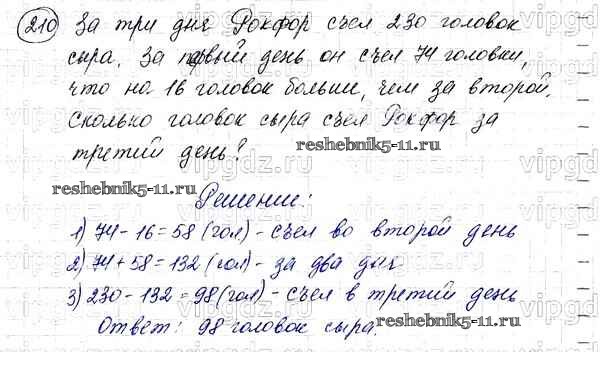 210 За три дня Рокфор съел 230 головок
сыра. За первый день он съел 74 головки,
что на 16 головок больше, чем за второй.
Сколько головок сыра съел Рокфор за
третий день?
reshebnik5-11.ru
reshebnik5-11.ru
Решение:
1) 74-16=58 (гол) - съел во второй день
2) 74+58=132 (гол) - за два дня
3) 230-132=98 (гол) - съел в третий день
Ответ: 98 головок сыра.
reshebnik5-11.ru